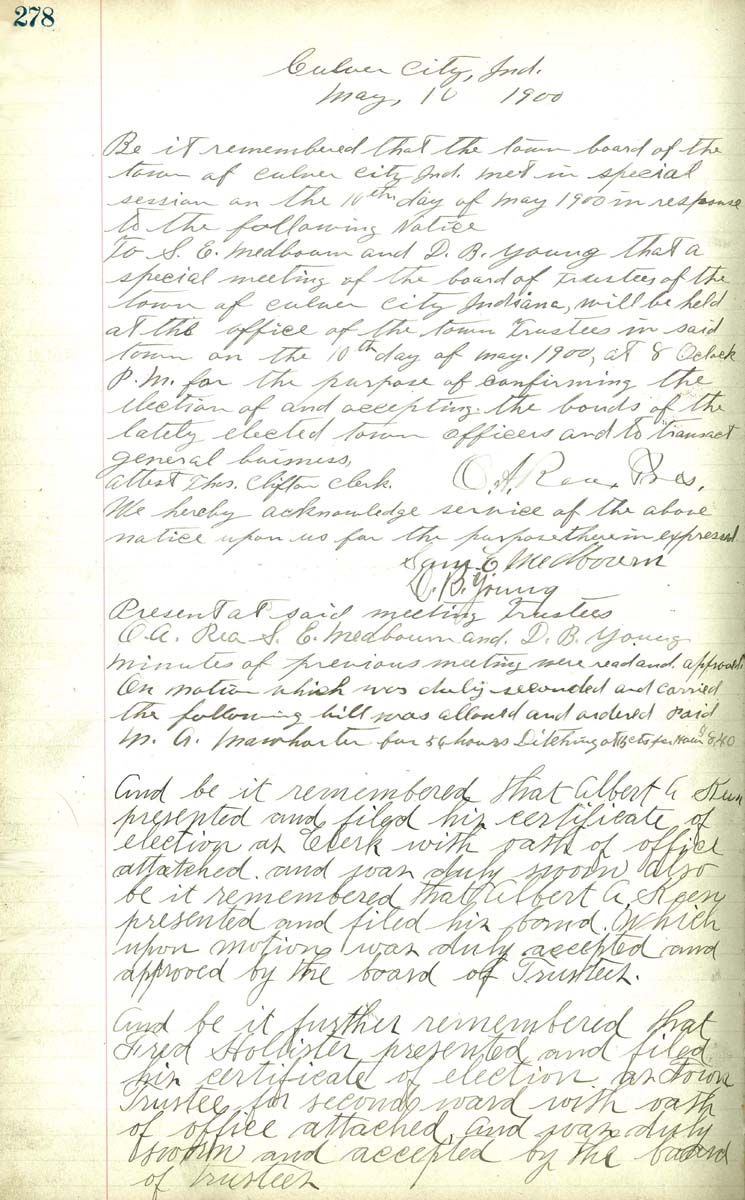 278
Culver City, Ind.
May, 10 1900
Be it remembered that the town board of the
town of culver city Ind. met in special
session on the 10th day of may 1900 in response
to the following Notice
To S. E. Medbourn and D. B. Young that a
special meeting of the board of Trustees of the
town of culver city Indiana, will be held
at the office of the town Trustees in said
town on the 10th day of may. 1900, at 8 Oclock
P.M. for the purpose of confirming the
election of and accepting the bonds of the
lately elected town officers and to transact
general buisness,
attest Thos. Clifton Clerk. O. A. Rea, Pres.
We hereby acknowledge service of the above
notice upon us for the purpose therein expressed
Sam E Medbourn
D. B. Young
Present at said meeting Trustees
O. A. Rea S. E. Medbourn and D. B. Young
minutes of previous meeting were read and approved.
On motion which was duly seconded and carried
the following bill was allowed and ordered Paid
M. A. Mawhorter for 56 hours Ditching at 15 cts per Hour $8.40
And be it remembered that Albert A Keen
presented and filed his certificate of
election as Clerk with oath of office
attatched. and was duly sworn also
be it remembered that Albert A. Keen
presented and filed his bond. Which
upon motion was duly accepted and
approved by the board of Trustees.
And be it further remembered that
Fred Hollister presented and filed
his certificate of election as Town
Trustee for second ward with oath
of office attached and was duly
sworn and accepted by the board
of trustees